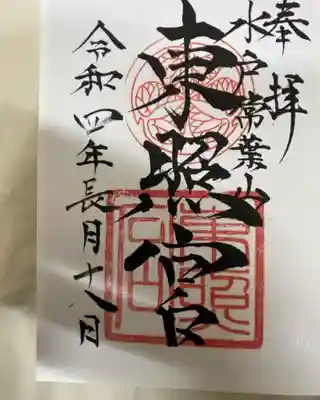 奉拝
水戸常葉山
東照宮
令和四年長月十八日